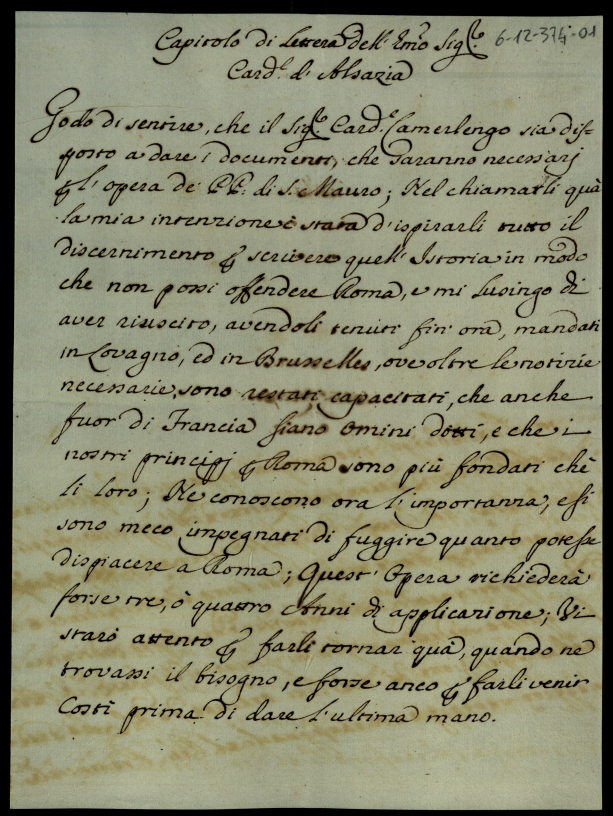 Capitolo di Lettera dell' Em.o Sig.e 6-12-374-01
Card.l d' Alsazia
Godo di sentire, che il Sig.e Card.l Camerlengo sia dis=
posto a dare i documenti, che saranno necessarj
p l' opera de' PP. di S. Mauro; Nel chiamarli quà
la mia intenzione è stata d' ispirarli tutto il
discernimento p scrivere quell' Istoria in modo
che non possi offendere Roma, e mi lusingo di
aver riuscito, avendoli tenuti fin' ora, mandati
in Lovagno, ed in Brusselles, ove oltre le notizie
necessarie, sono restati capacitati, che anche
fuor di Francia siano Omini dotti, e che i
nostri principj p Roma sono più fondati chè
li loro; Ne conoscono ora l' importanza, e si
sono meco impegnati di fuggire quanto potesse
dispiacere a Roma; Quest' Opera richiederà
forse tre, ò quattro Anni di applicazione; Vi
starò attento p farli tornar quà, quando ne
trovassi il bisogno, e forse anco p farli venir
Costì prima di dare l' ultima mano.